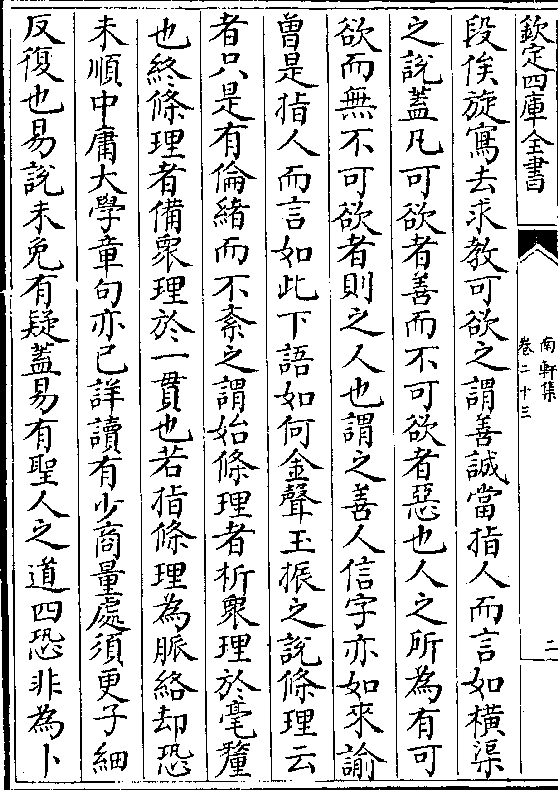 欽定四庫全書
南軒集
卷二十三
二
段俟旋寫去求教可欲之謂善誠當指人而言如橫渠
之說蓋凡可欲者善而不可欲者惡也人之所為有可
欲而無不可欲者則之人也謂之善人信字亦如來諭
曽是指人而言如此下語如何金聲玉振之說條理云
者只是有倫緒而不紊之謂始條理者析衆理於毫釐
也終條理者備衆理於一貫也若指條理為脈絡却恐
未順中庸大學章句亦已詳讀有少商量處須更子細
反復也易說未免有疑蓋易有聖人之道四恐非為卜